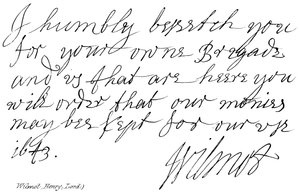 I humbly beseetch you
for your owne Bregade
and vs that are heere you
will order that our monies
may bee kept for our vse
1643.
Wilmot
Wilmot (Henry, Lord.)